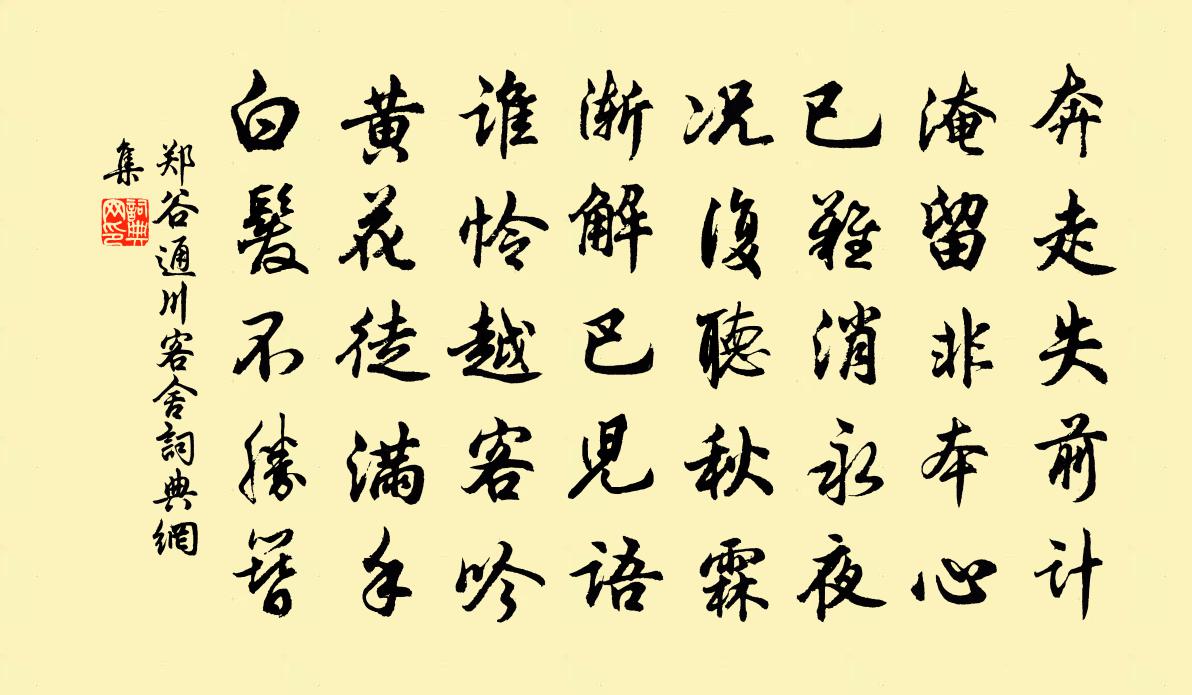 奔走失前计
淹留非本心
已難消永夜
况復聴秋霖
渐解巴児語
谁怜越客吟
黄花徒满手
白髮不勝簪
郑谷通川客舍詞典網
集
詞典
网印